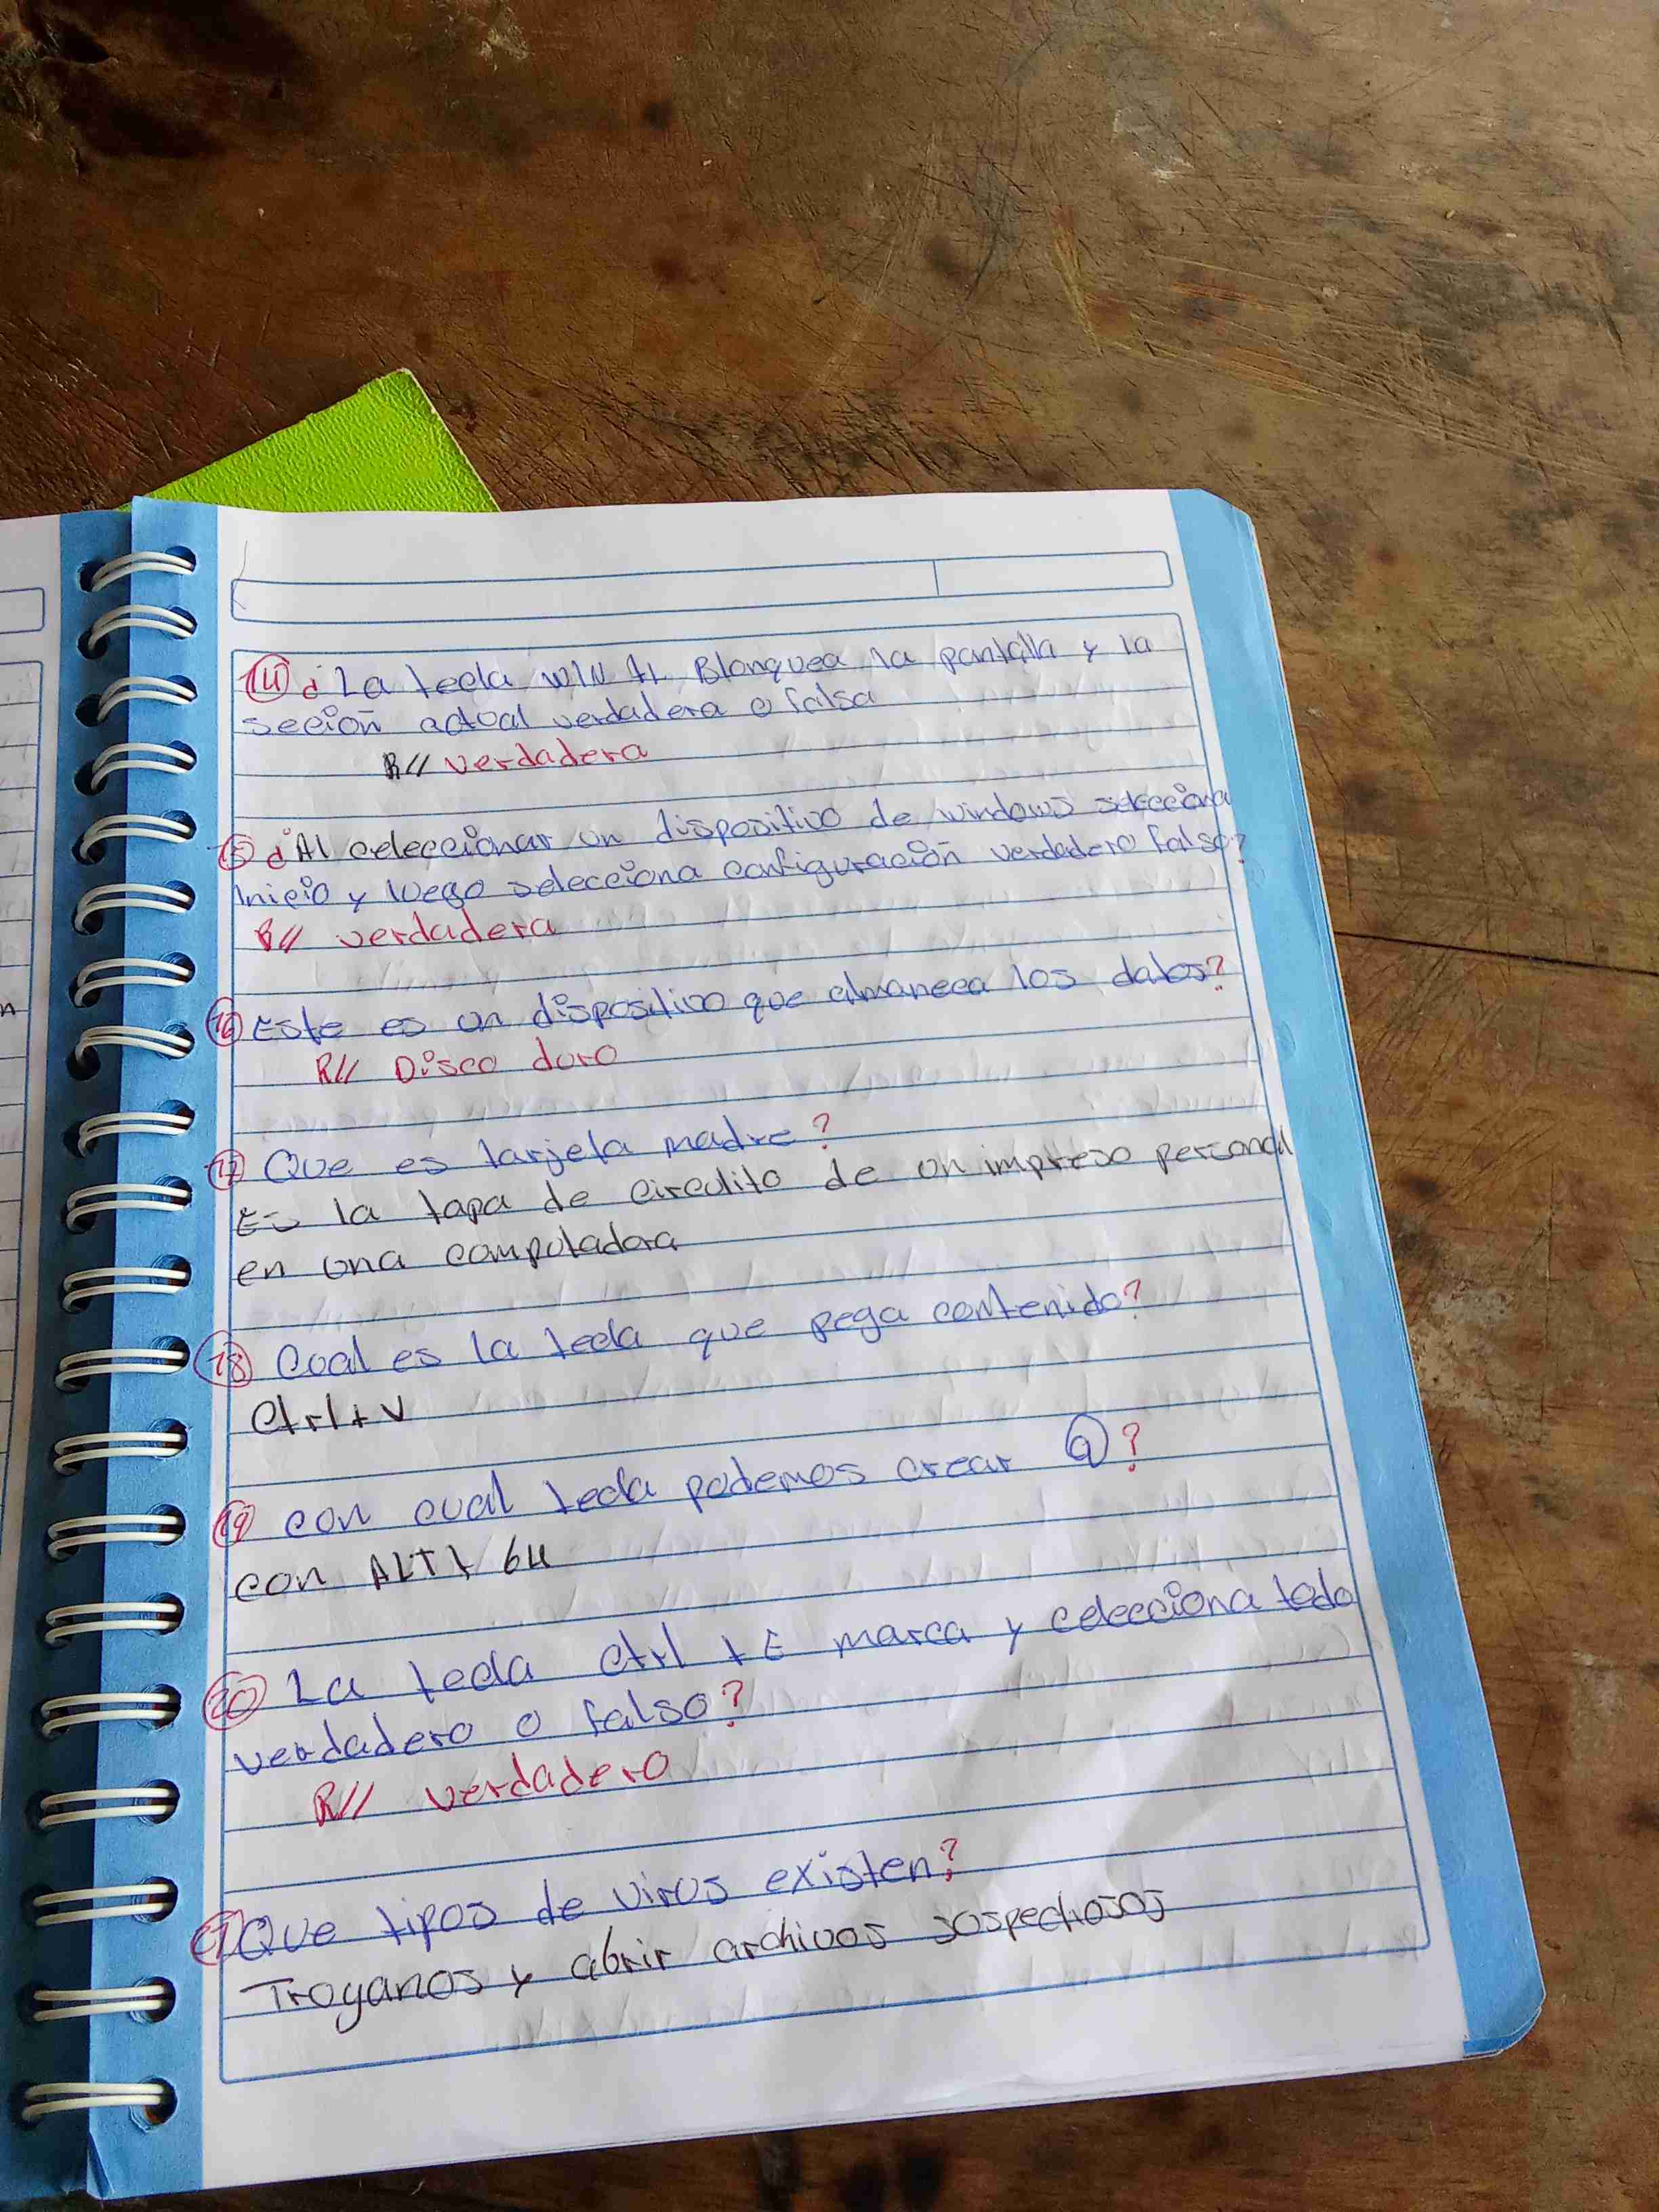 14 ¿La tecla WIN +L Blonquea la pantalla y la
seción actual verdadera o falsa
R// verdadera
15 ¿Al celeccionar un dispositivo de windows selecciona
Inicio y luego selecciona configuración verdadero falso?
R// verdadera
16 Este es un dispositivo que almaneca los datos?
R// Disco duro
17 Que es tarjeta madre?
Es la tapa de circulito de un impreso personal
en una computadora
18 Cual es la tecla que pega contenido?
Ctrl+V
19 con cual tecla podemos crear @?
con ALT+ 64
20 La tecla ctrl +E marca y celecciona todo
verdadero o falso?
R// verdadero
21 Que tipos de virus existen?
Troyanos y abrir archivos sospechosos
n